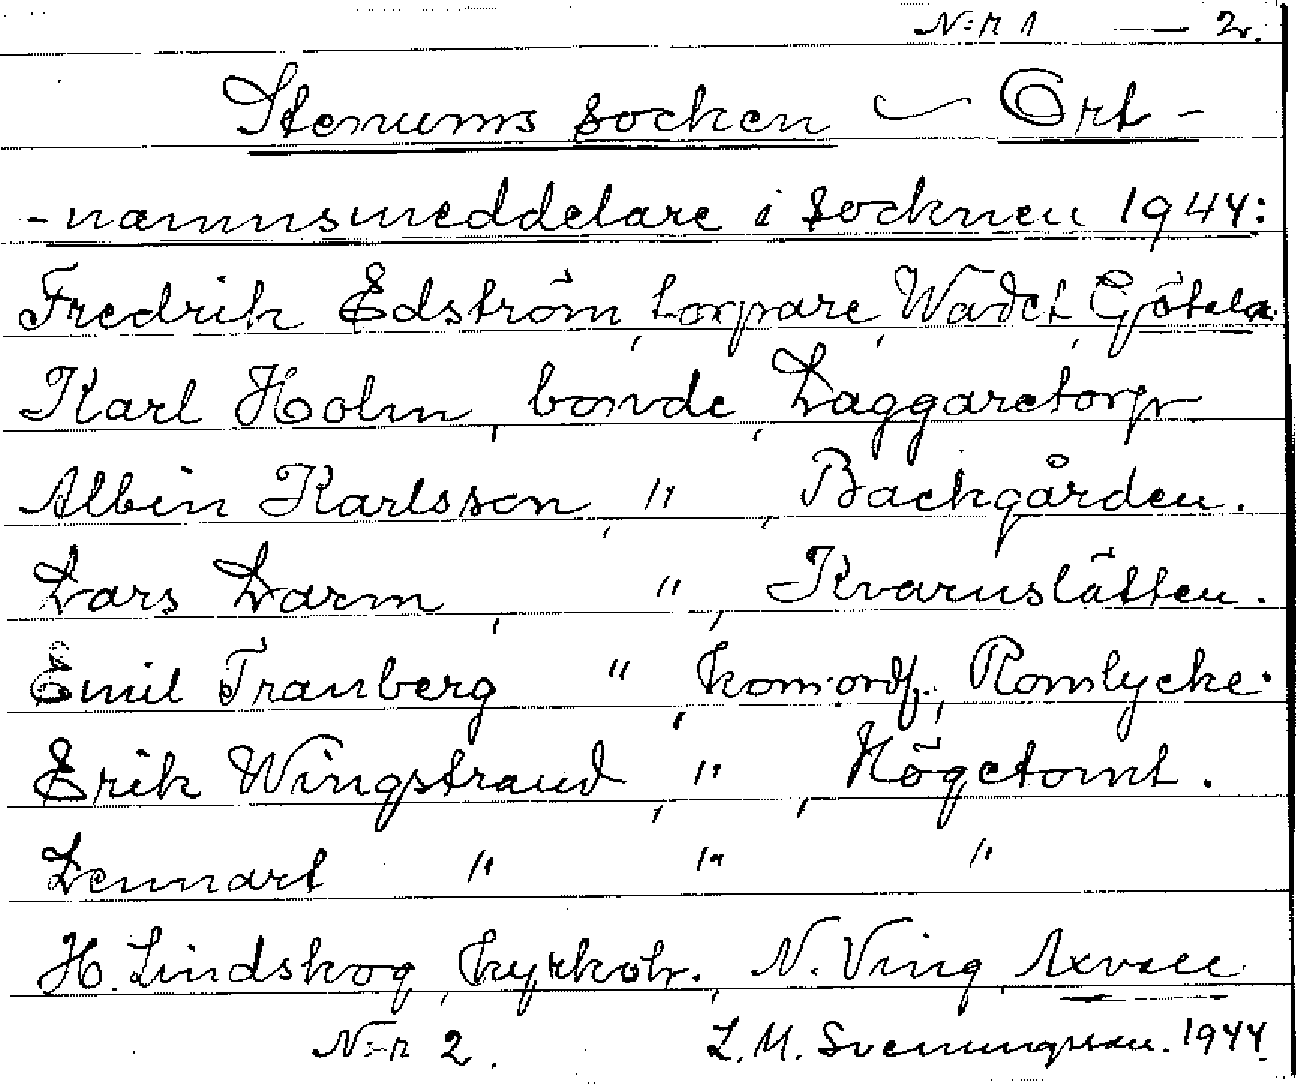 N:r 1 — 2.
Stenums socken – Ort-
-namnsmeddelare i socknen 1944:
Fredrik Edström, torpare, Wadet, Götala
Karl Holm, bonde, Laggaretorp
Albin Karlsson, " , Backgården.
Lars Larm, " , Kvarnslätten.
Emil Tranberg " , kom.ordf., Romlycke.
Erik Wingstrand, " , Högetomt.
Lennart " " "
H. Lindskog, kyrkoh., N. Ving, Axvall
N:r 2. L. M. Svenungsson. 1944.